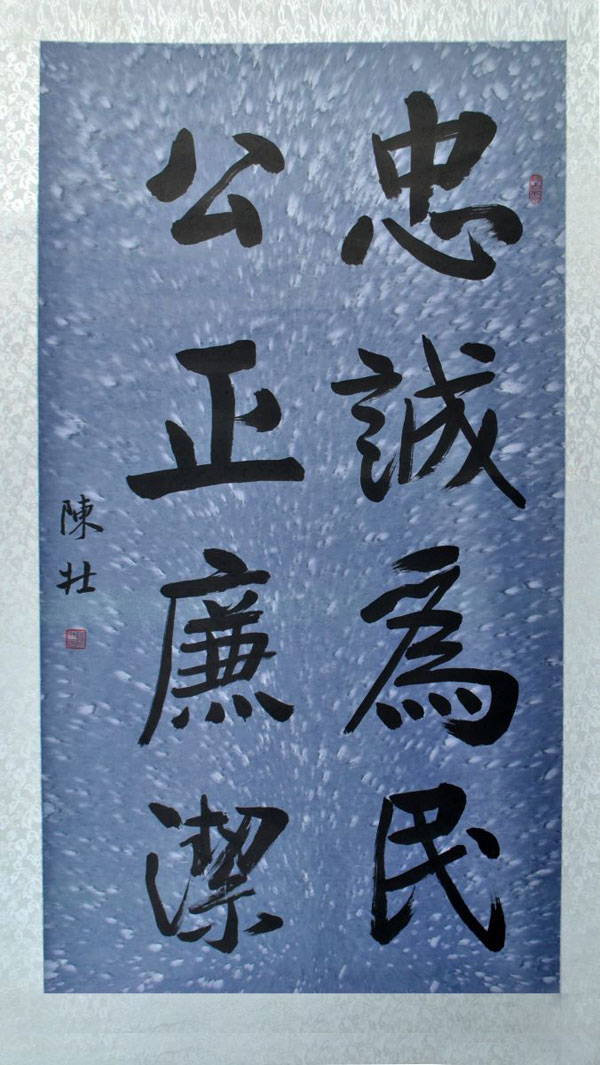 忠誠為民
公正廉潔
陳壯